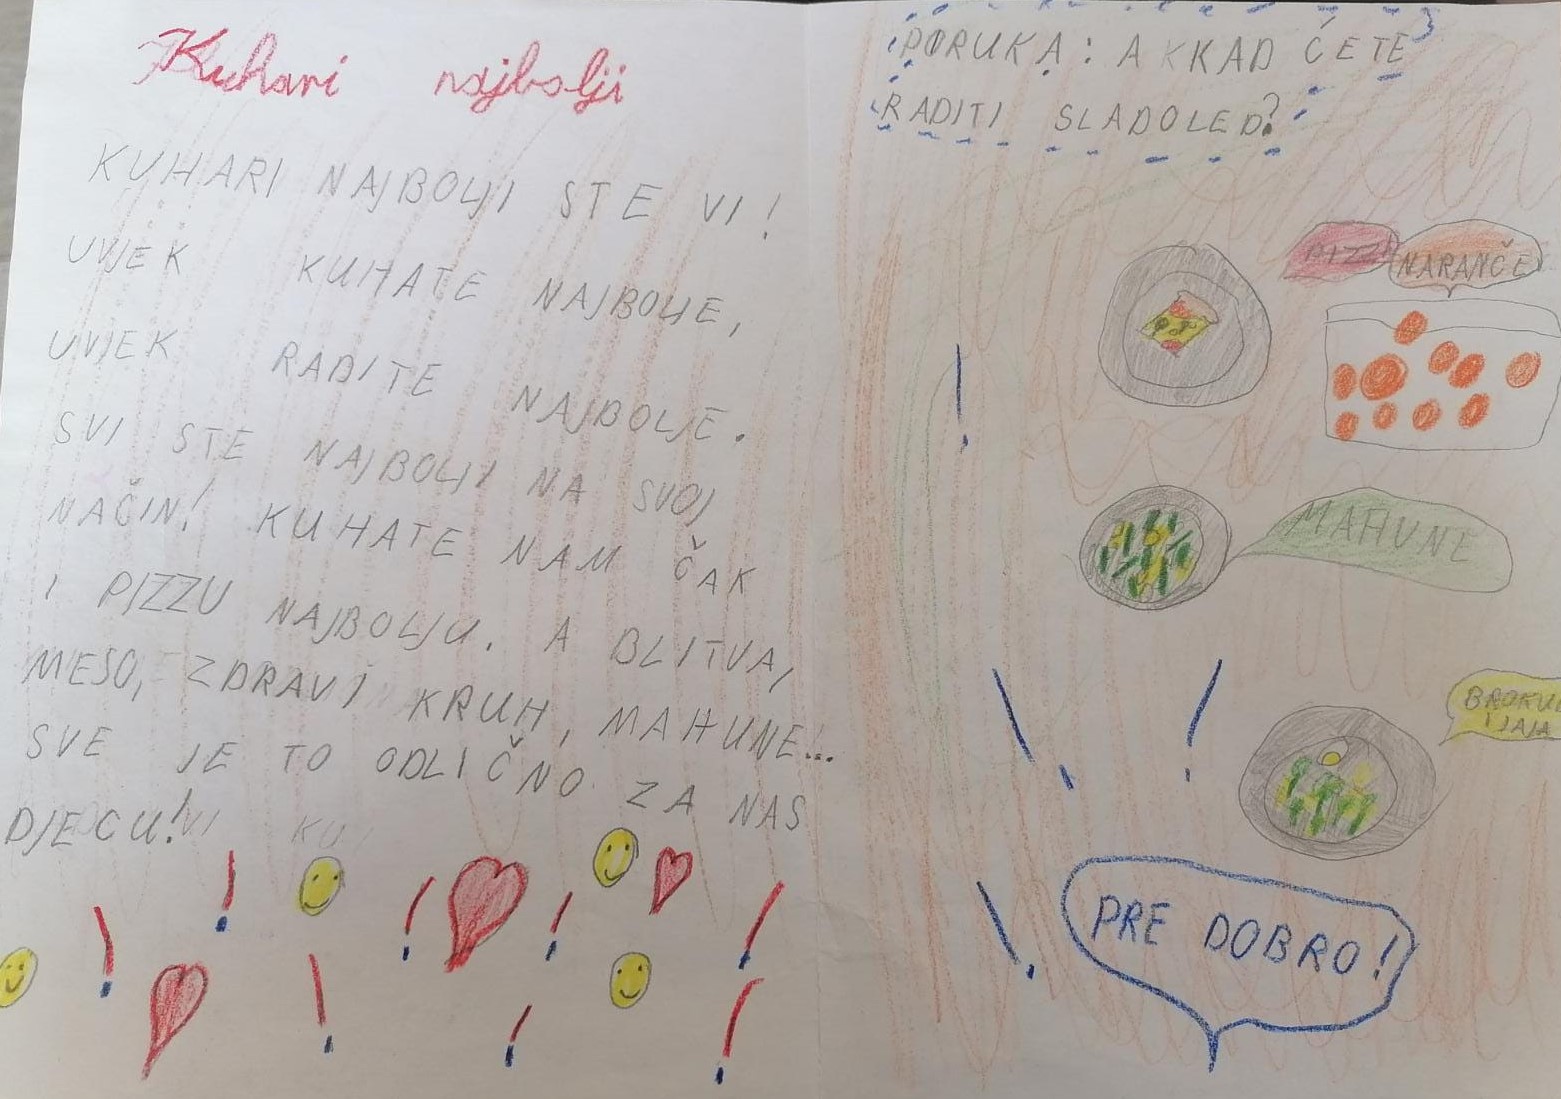 Kuhari najbolji
KUHARI NAJBOLJI STE VI!
UVJEK KUHATE NAJBOLJE,
UVJEK RADITE NAJBOLJE.
SVI STE NAJBOLJI NA SVOJ
NAČIN! KUHATE NAM ČAK
I PIZZU NAJBOLJU. A BLITVA,
MESO, ZDRAVI KRUH, MAHUNE...
SVE JE TO ODLIČNO ZA NAS
DJECU!
PORUKA: A KKAD ĆETE
RADITI SLADOLED?
NARANČE
MAHUNE
I JAJA
PRE DOBRO!